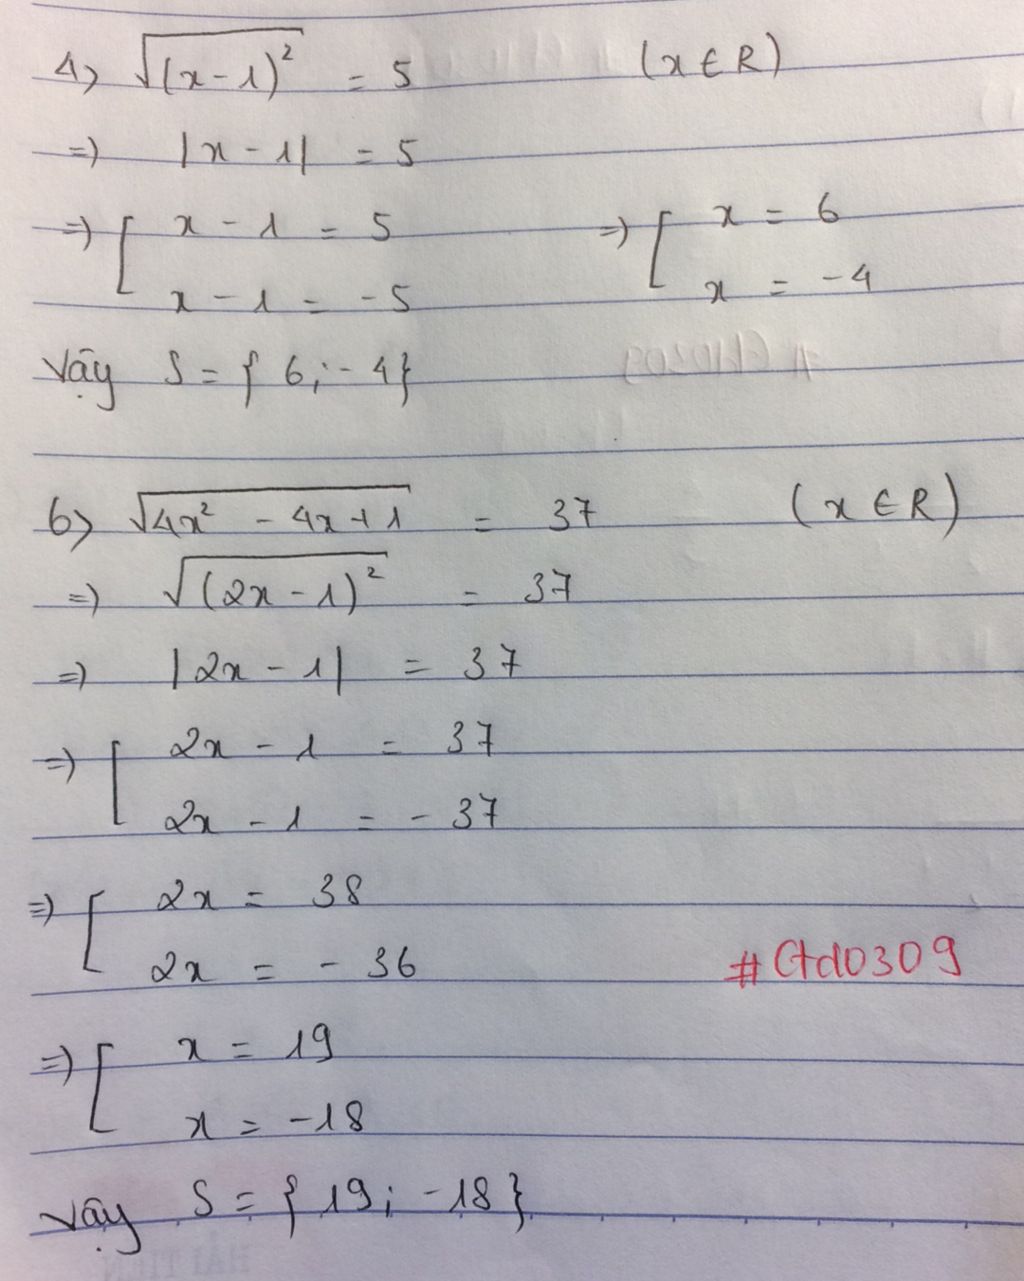 4) √(x-1)² = 5 (x ∈ R)
=> |x - 1| = 5
=> [ x - 1 = 5 => [ x = 6
x - 1 = -5 x = -4
Vậy S = { 6; -4}
6) √4x² - 4x + 1 = 37 (x ∈ R)
=> √(2x - 1)² = 37
=> |2x - 1| = 37
=> [ 2x - 1 = 37
2x - 1 = - 37
=> [ 2x = 38
2x = - 36
#Ctd0309
=> [ x = 19
x = -18
Vậy S = { 19; -18 }